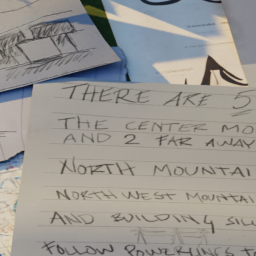 THERE ARE 5
THE CENTER MO
AND 2 FAR AWAY
NORTH MOUNTAI
NORTH WEST MOUNTAI
AND BUILDING SILL
FOLLOW POWERLINES T